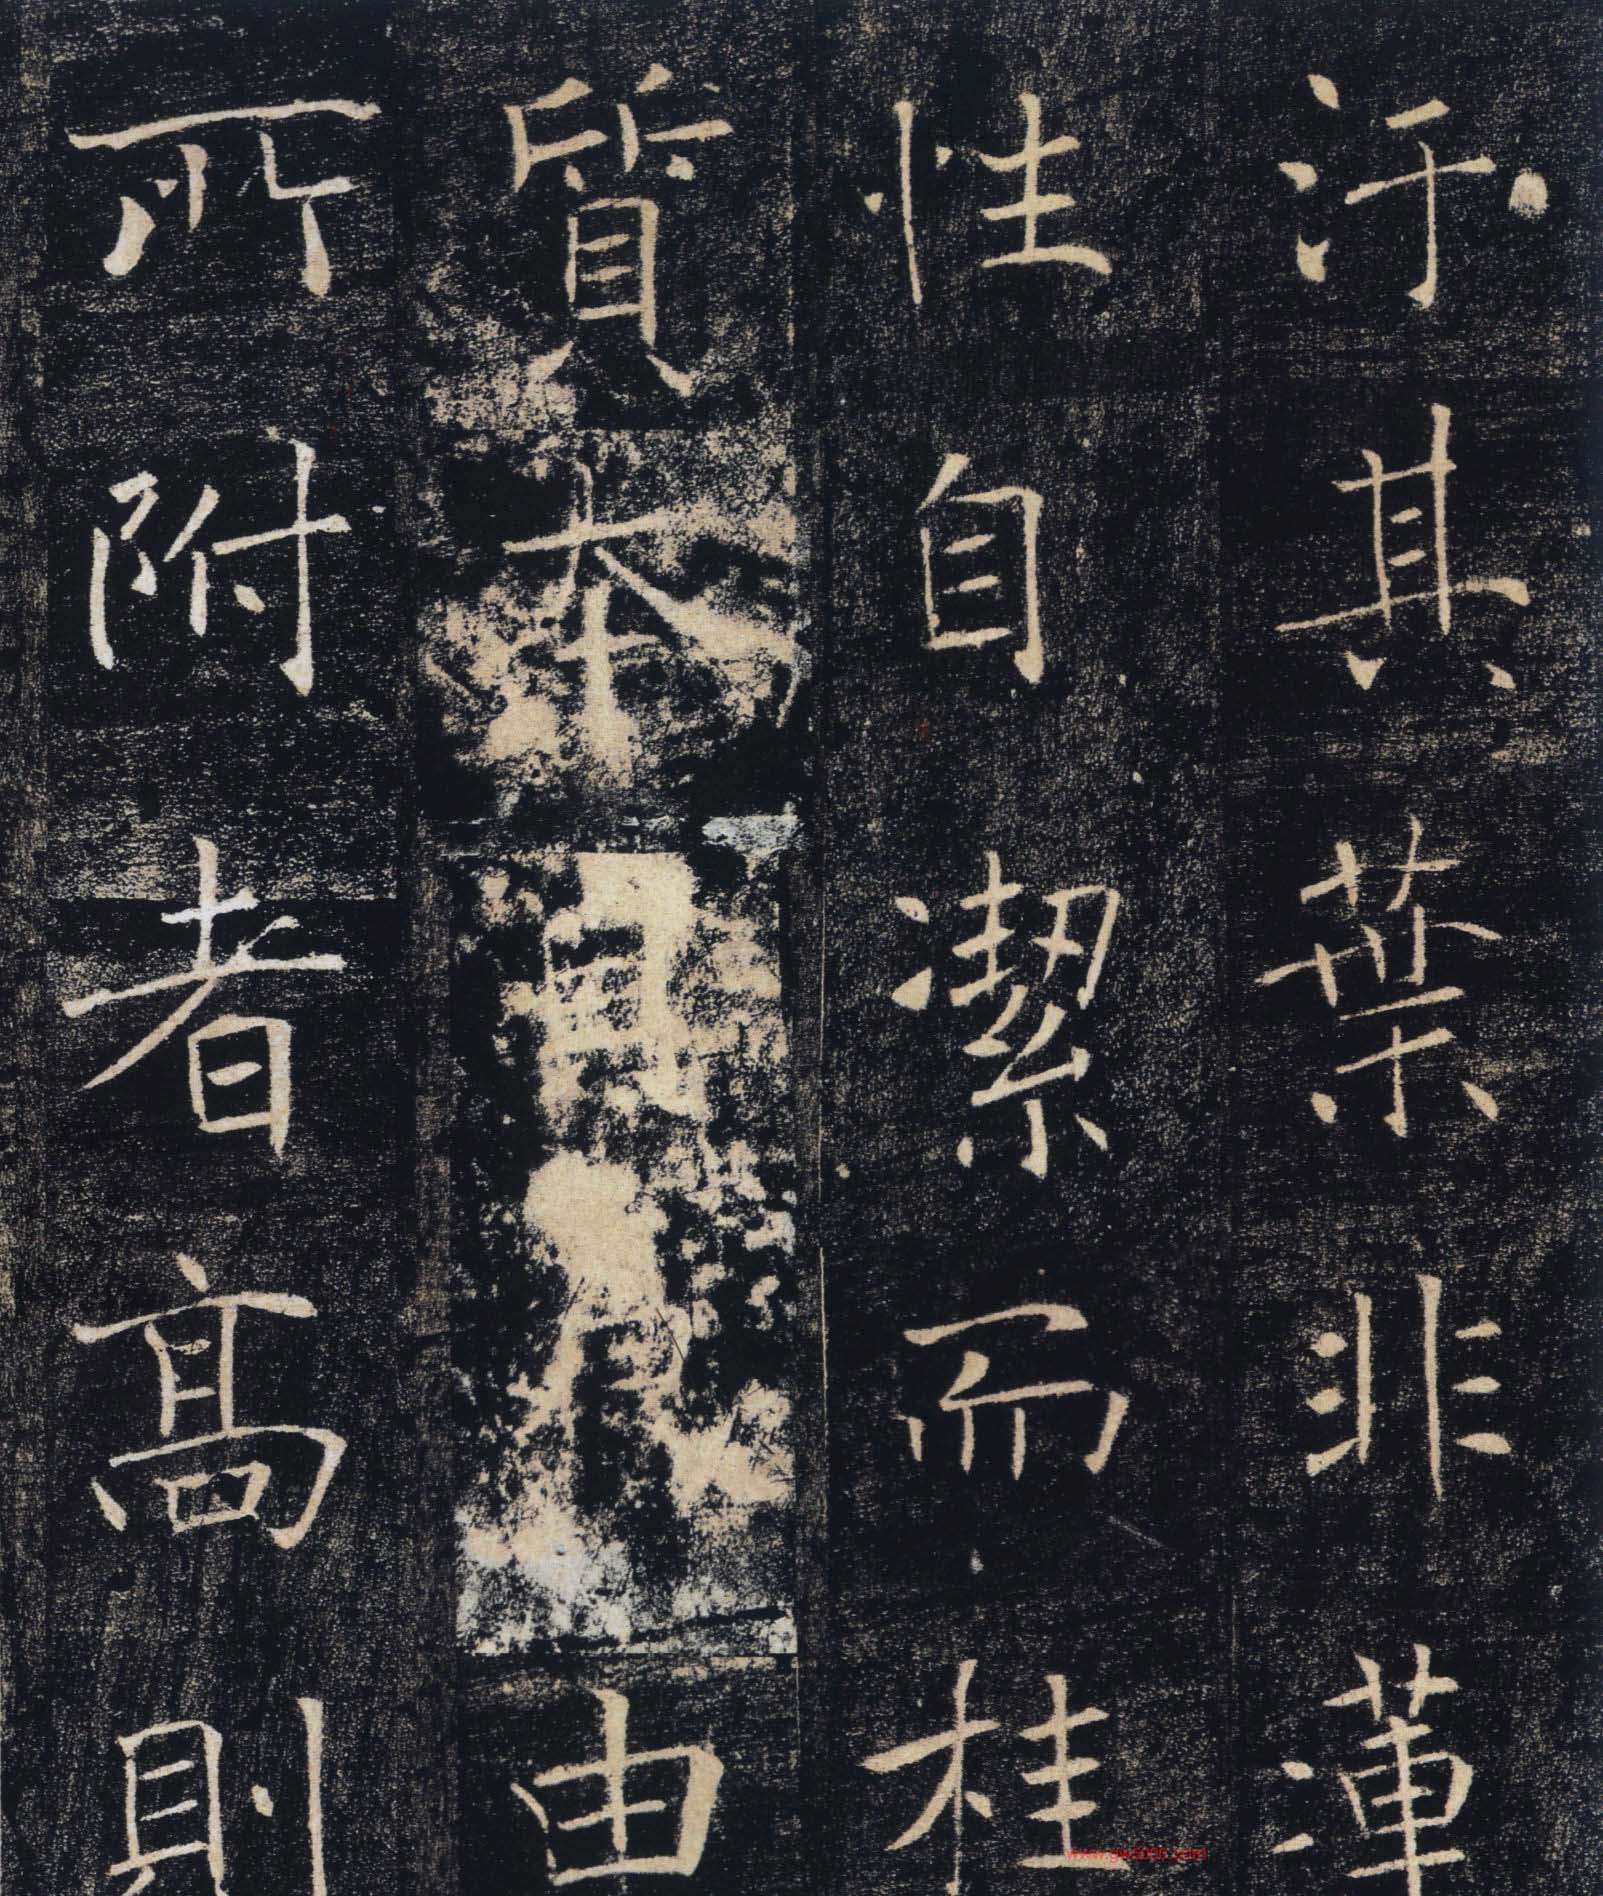 汙其葉非蓮
性自潔而桂
質本貞良由
所附者高則
www.gw5000.com